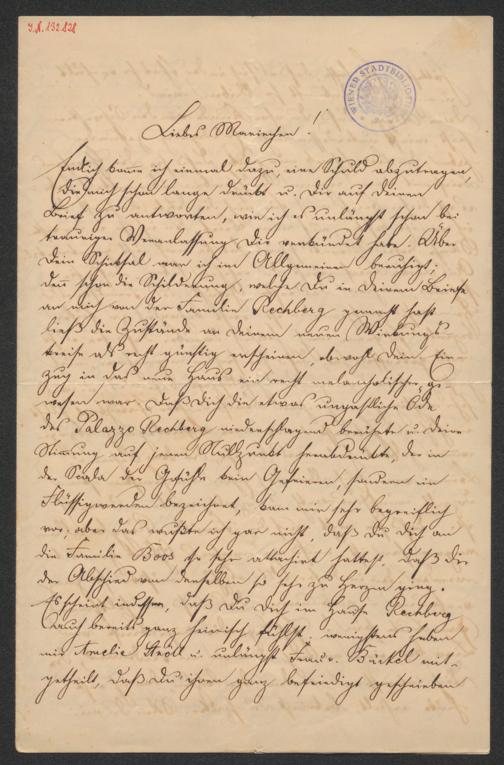 J.N. 192.828
WIENER STADTBIBLIOTHEK
Liebes Mariechen!
Endlich komme ich einmal dazu, eine Schuld abzutragen,
die mich schon lange drückt u. Dir auf Deinen
Brief zu antworten, wie ich es unlängst schon bei
trauriger Veranlassung Dir verkündet habe. Über
Dein Schicksal war ich im Allgemeinen beruhigt;
denn schon die Schilderung, welche Du in Deinem Briefe
an mich von der Familie Rechberg gemacht hast
ließ die Zustände an Deinem neuen Wirkungs-
kreise als recht günstig erscheinen, obwohl Dein Ein-
zug in das neue Haus ein recht melancholischer ge-
wesen war. Daß Dich die etwas ungastliche Öde
des Palazzo Rechberg niederschlagend berührte u. Deine
Stimmung auf jenen Nullpunkt herabdrückte, der in
der Scala der Gefühle kein Gefrieren, sondern ein
Flüssigwerden bezeichnet, kam mir sehr begreiflich
vor; aber das wußte ich gar nicht, daß Du Dich an
die Familie Boos so sehr attachirt hattest, daß Dir
der Abschied von derselben so sehr zu Herzen ging.
Es scheint indessen, daß Du Dich im Hause Rechberg
auch bereits ganz heimisch fühlst, wenigstens haben
mir Amelie u. unlängst Frau v. Bückel mit-
getheilt, daß Du ihnen ganz befriedigt geschrieben